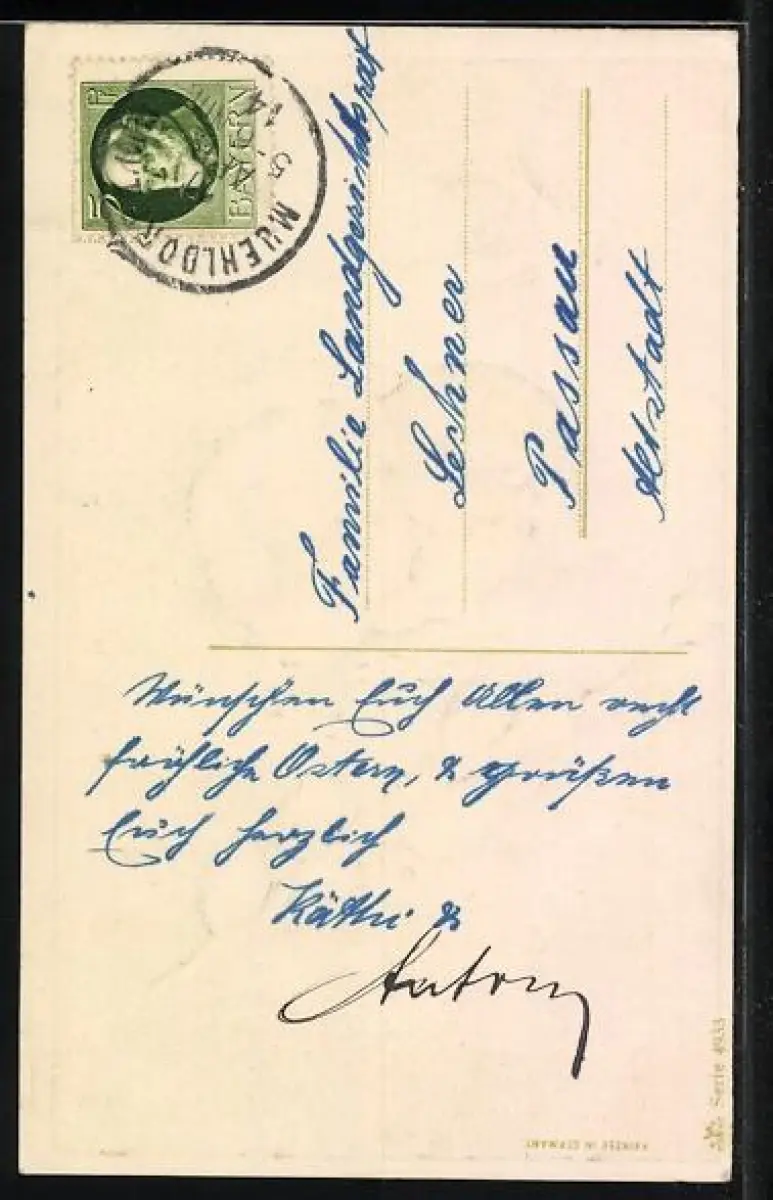 BAYERN
MUEHLDORF
Familie Landgerichtsrat
Lechner
Passau
Altstadt
Wünschen Euch Allen recht
fröhliche Ostern, & grüßen
Euch herzlich
Käthi &
Anton
Serie 4933
PRINTED IN GERMANY